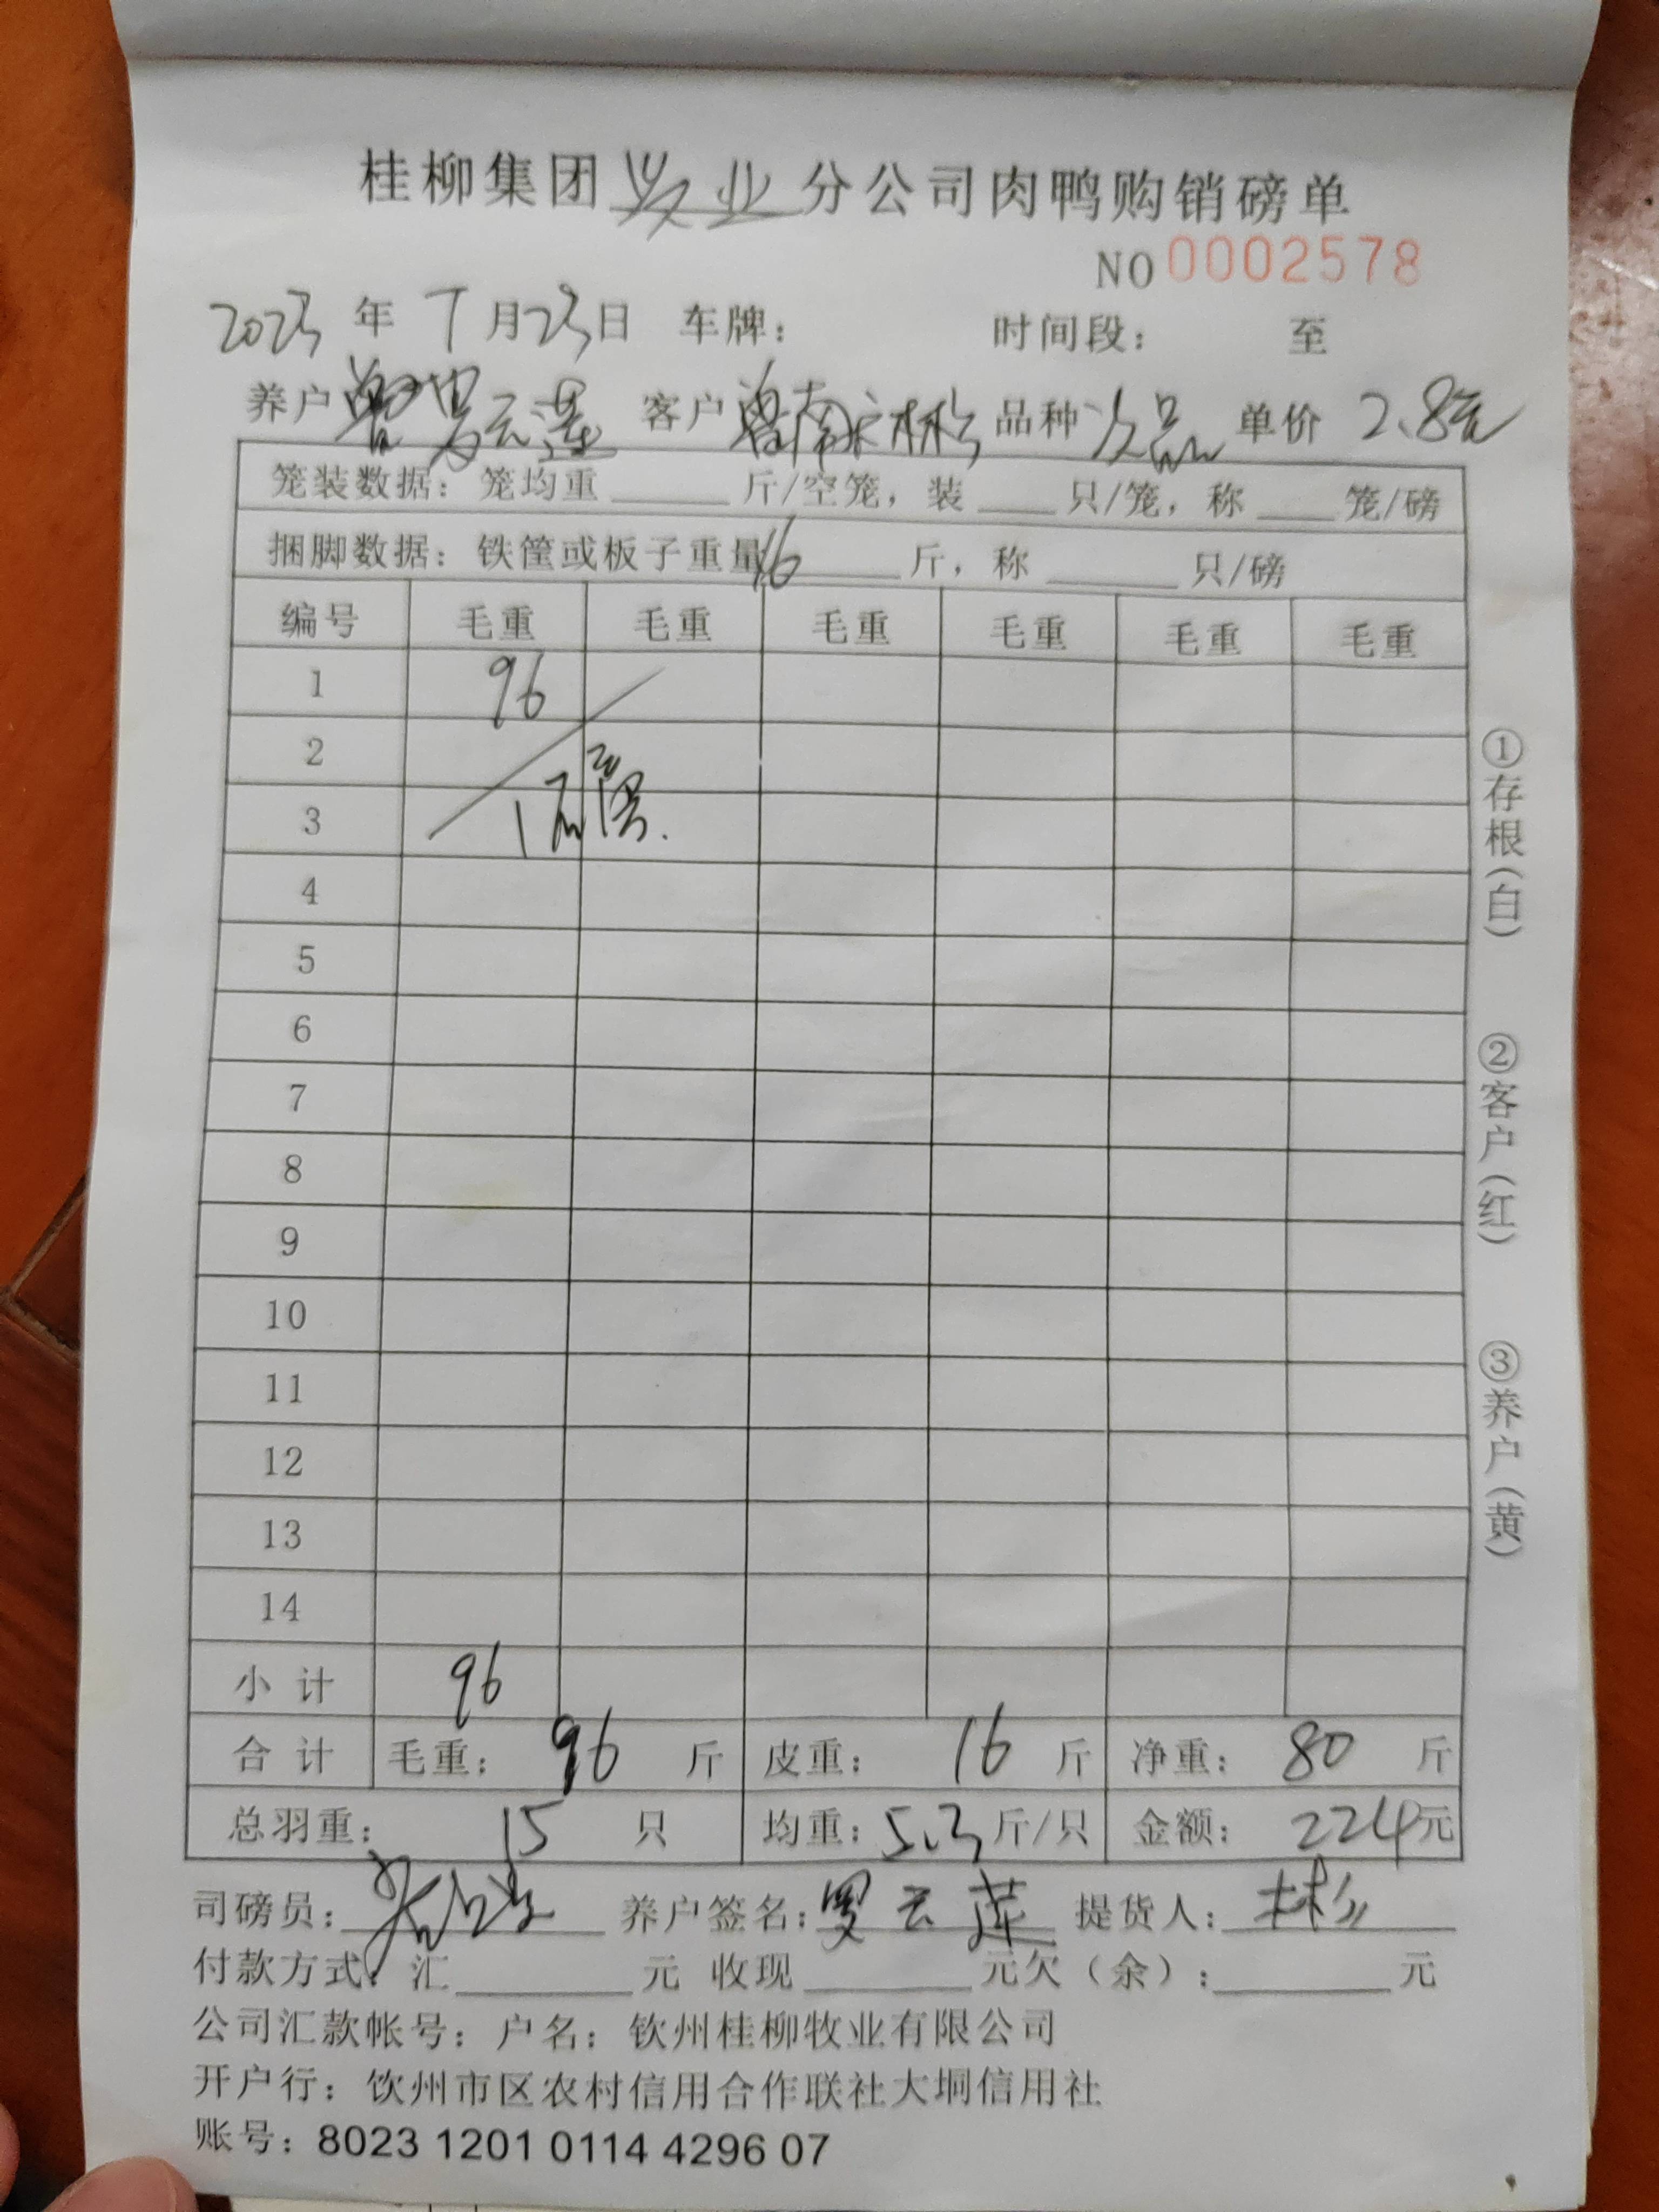 桂柳集团兴业分公司肉鸭购销磅单
NO 0002578
2023年7月23日 车牌: 时间段: 至
养户 客户 品种 次品 单价 2.8元
笼装数据: 笼均重 斤/空笼, 装 只/笼, 称 笼/磅
捆脚数据: 铁筐或板子重量16 斤, 称 只/磅
编号 毛重 毛重 毛重 毛重 毛重 毛重
1 96
2
3
4
5
6
7
8
9
10
11
12
13
14
小计 96
合计 毛重: 96 斤 皮重: 16 斤 净重: 80 斤
总羽重: 15 只 均重: 5.3斤/只 金额: 224元
司磅员: 养户签名: 罗云莲 提货人: 林彡
付款方式: 汇 元 收现 元欠(余): 元
公司汇款帐号: 户名: 钦州桂柳牧业有限公司
开户行: 饮州市区农村信用合作联社大垌信用社
账号: 8023 1201 0114 4296 07
①存根(白)
②客户(红)
③养户(黄)